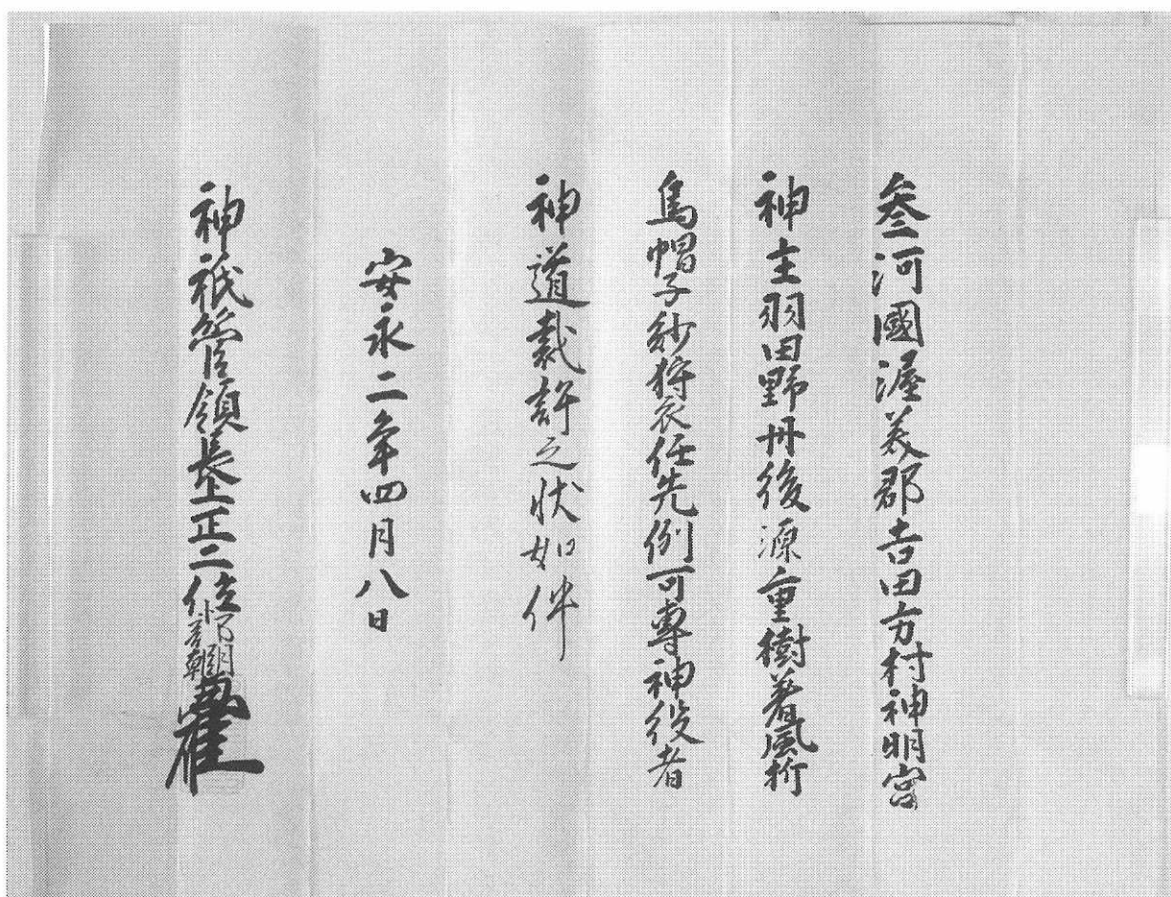 叄河國渥美郡吉田方村神明宮
神主羽田野丹後源重樹着風折
烏帽子紗狩衣任先例可專神役者
神道裁許之状如件
安永二年四月八日
神祇管領長上正二位卜部朝臣兼雄